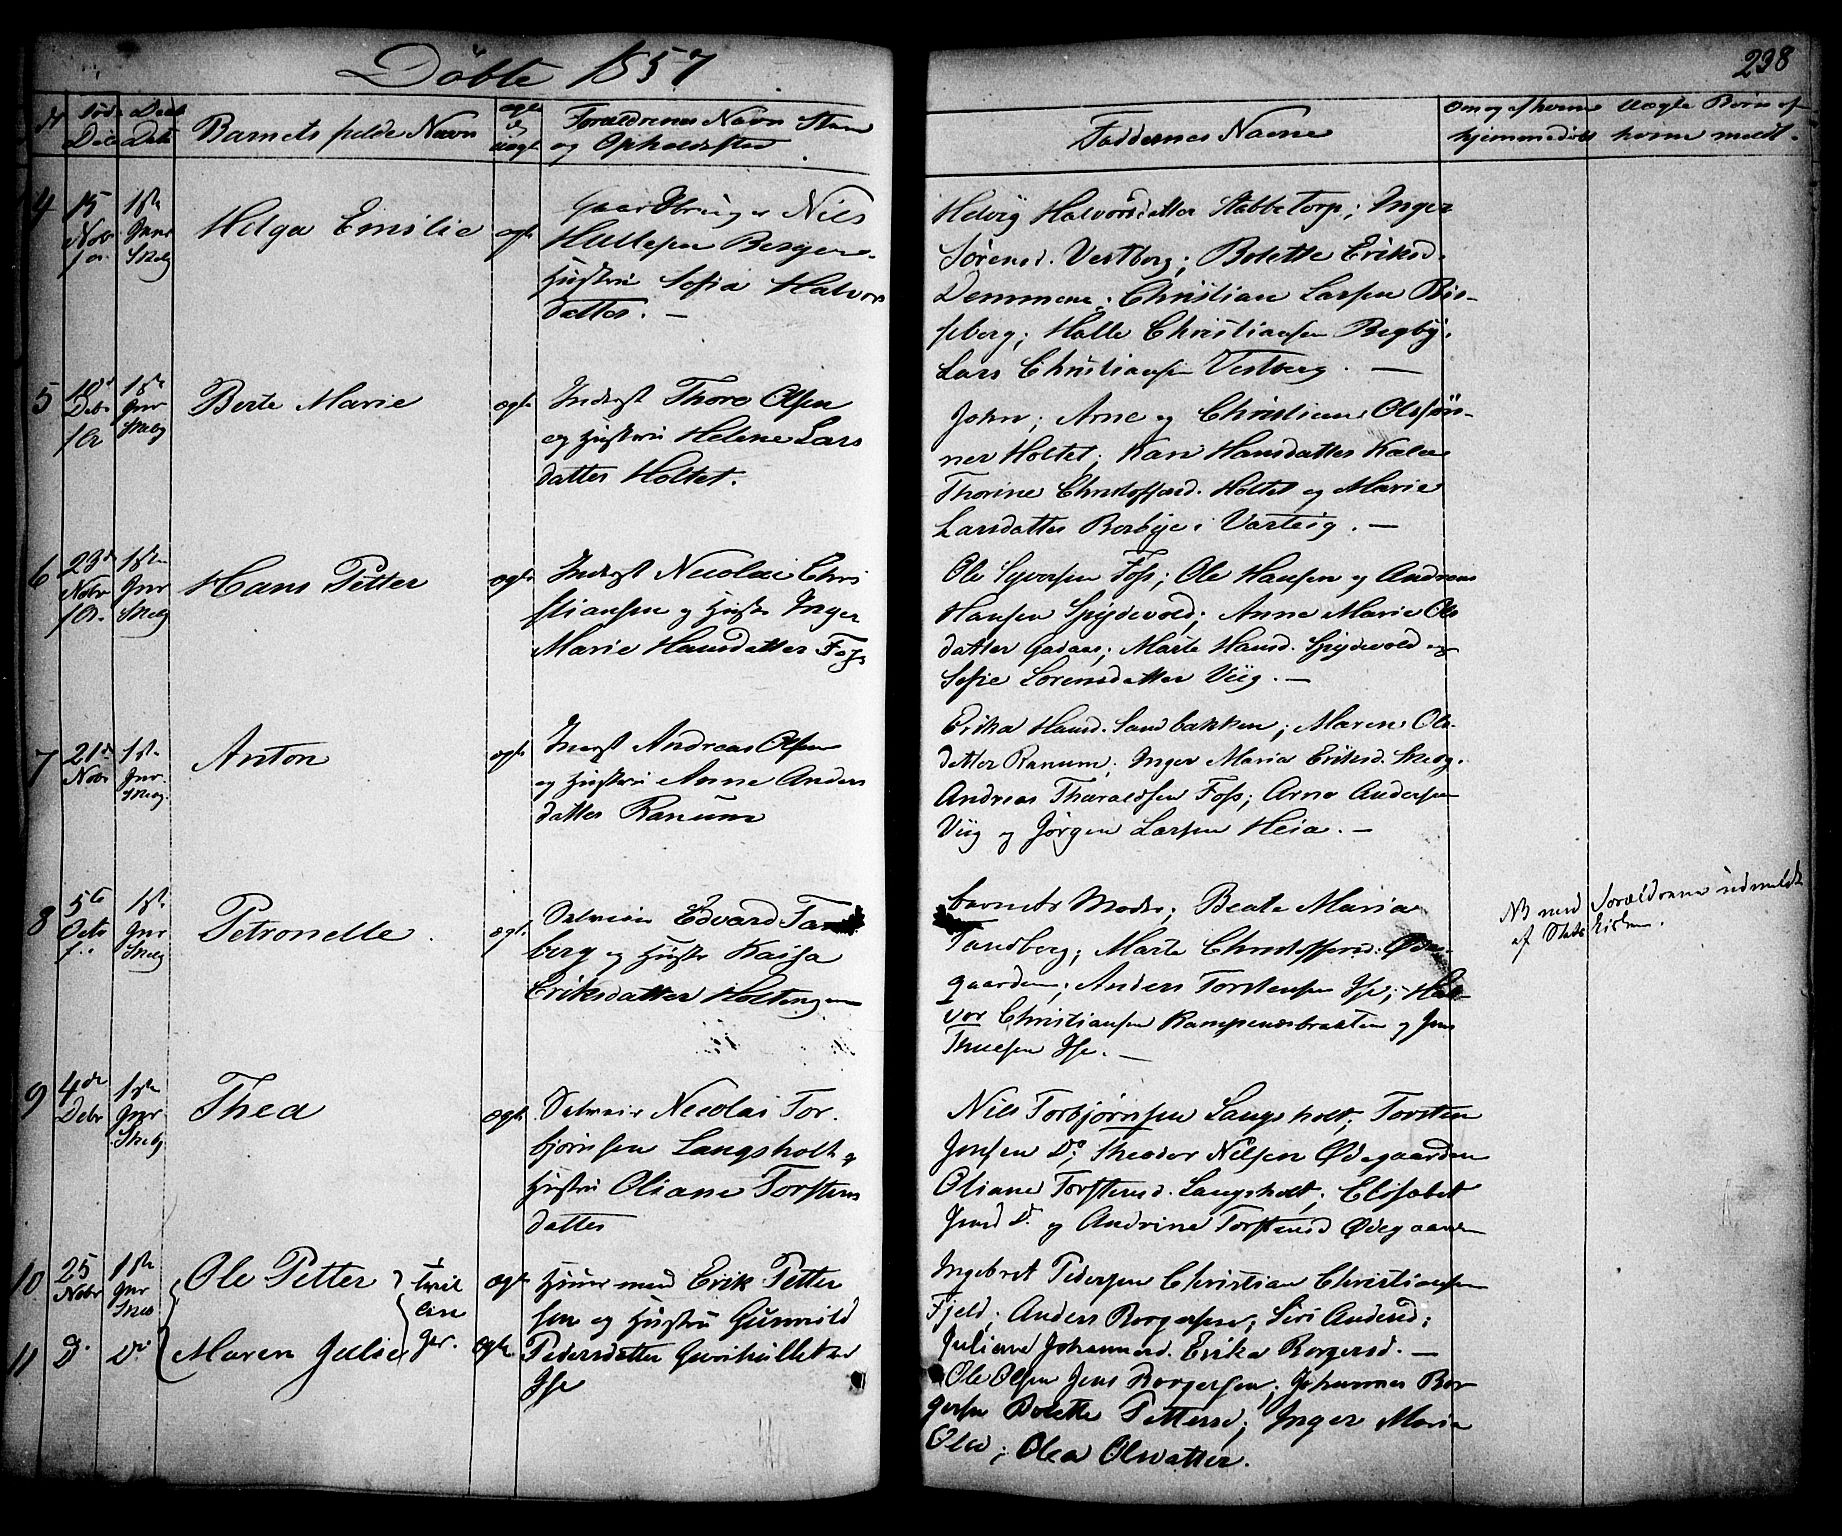 Döbte 1857
238
№
Föd.
Date
Döbt
Date
Barnets fulde Navn
ægte
el
uægte
Forældrenes Navn Stan
og Opholdssted
Faddernes Navne
Om og af hvem
hjemmedøbt
Uægte Børn af
hvem meldt.
4
15
Novr
1ste
Janr
Skibg
Helga Emilie
ægte
Gaardbruger Nils
Hallesen Bergen.
Hustrue Sofia Halvors
datter. —
Helvig Halvorsdatter Stabbetorp; Inger
Sörensd. Vestberg; Bolette Eriksd.
Demmene; Christian Larsen Bis-
seberg; Halle Christiansen Begby.
Lars Christiansen Vestberg. —
5
18de
Debr
1ste
Jnr
Skibg
Berte Marie
ægte
Inderst Thore Olsen
og Hustrue Helene Lars
datter Holtet.
John; Arne og Christian Olssön-
ner Holtet; Kari Hansdatter Kalnes
Thorine Christoffersd. Holtet og Marie
Larsdatter Borbye i Varteig. —
6
23de
Novr
1ste
Jnr
Skibg
Hans Petter
ægte
Inderst Nicolai Chri
stiansen og Hustr Inger
Marie Hansdatter Foss
Ole Syversen Foss; Ole Hansen og Andreas
Hansen Spydevold; Anne Marie Ols
datter Gadaas; Marte Hansd. Spydevold og
Sofie Lorensdatter Viig. —
7
21de
Novr
1ste
Jnr.
Skibg.
Anton
ægte
Inderst Andreas Olsen
og Hustrue Anne Anders
datter Ranum
Erika Hansd. Sandbakken; Maren Ols-
datter Ranum; Inger Maria Eriksd. Skibg.
Andreas Tharaldsen Foss; Arne Andersen
Viig og Jörgen Larsen Heia. —
8
5te
Octr
1ste
Jnr
Skibg
Petronelle
ægte
Selveier Edvard Tand
berg og Hustr Kaisa
Eriksdatter Holtungen
barnets Moder; Beate Maria
Tandberg; Marte Christoffersd. Öde-
gaarden; Anders Torstensen Ise; Hal-
vor Christiansen Kampenesbrakken og Jens
Thuesen Ise. —
NB med Forældrene udmeldt
af Stats Kirken.
9
4de
Debr
1ste
Jnr
Skibg
Thea
ægte
Selveier Nicolai Tor-
bjørnsen Langsholt og
Hustru Oliane Torstens
datter
Nils Torbjørnsen Langsholt; Torsten
Jensen Do; Theodor Nilsen Ødegaarden
Oliane Torstensd. Langsholt; Elisabet
Jensd Do. og Andrine Torstensd Ødegaarden
10
25
Novr
1ste
Jnr
Skib
Ole Petter
Tvil
lin
ger.
ægte
Huusmand Erik Petter
sen og Hustru Gunnild
Ingebret Pedersen Christian Christiansen
Fjeld; Anders Borgersen; Siri Andersd;
Juliane Johannesd. Erika Borgersd. —
11
Do.
Do
Maren Julie
ægte
Pedersdatter Gurihullet
Ise
Ole Olsen Jens Borgersen; Johannes Bor
gersen Bolette Pettersd; Inger Maria
Olsd; Olea Olsdatter.